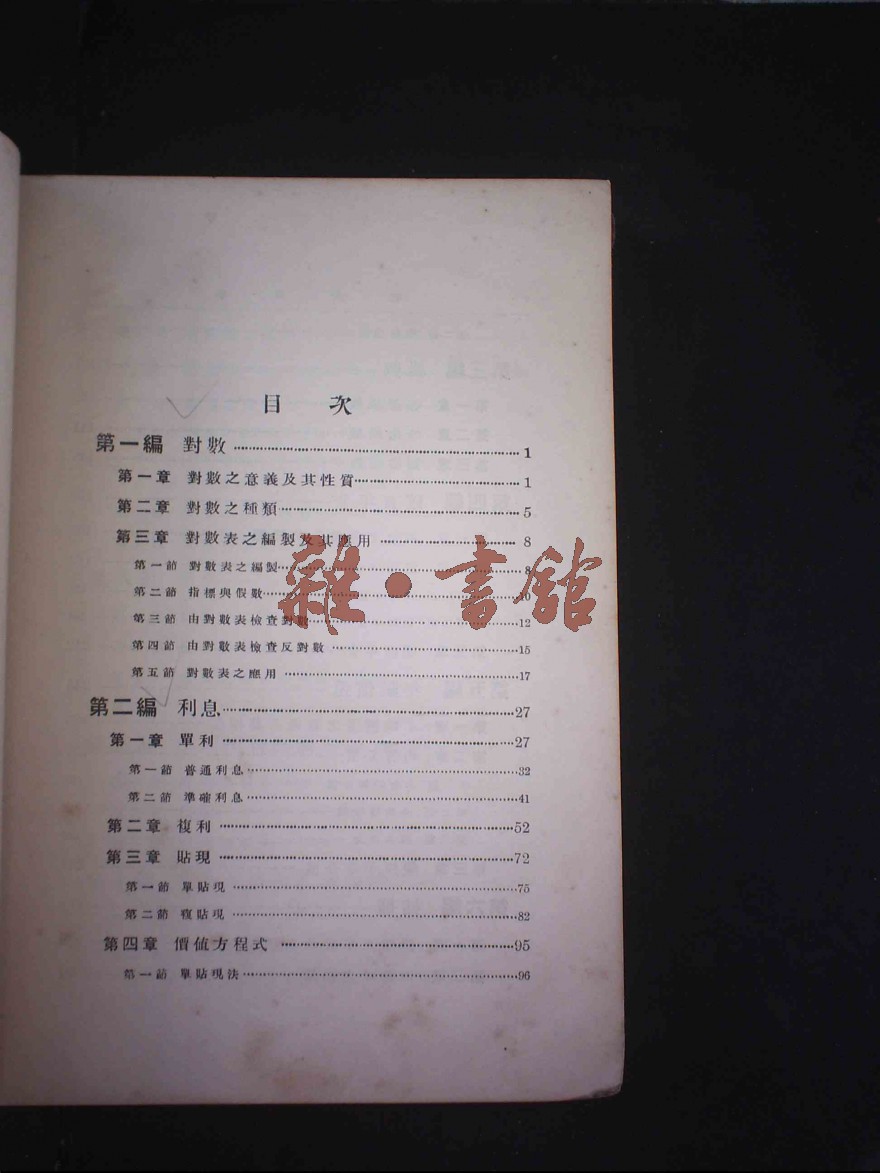 目 次
第一編 對數 1
第一章 對數之意義及其性質 1
第二章 對數之種類 5
第三章 對數表之編製及其應用 8
第一節 對數表之編製 8
第二節 指標與假數 10
第三節 由對數表檢查對數 12
第四節 由對數表檢查反對數 15
第五節 對數表之應用 17
第二編 利息 27
第一章 單利 27
第一節 普通利息 32
第二節 準確利息 41
第二章 複利 52
第三章 貼現 72
第一節 單貼現 75
第二節 複貼現 82
第四章 價值方程式 95
第一節 單貼現法 96
雜·書館